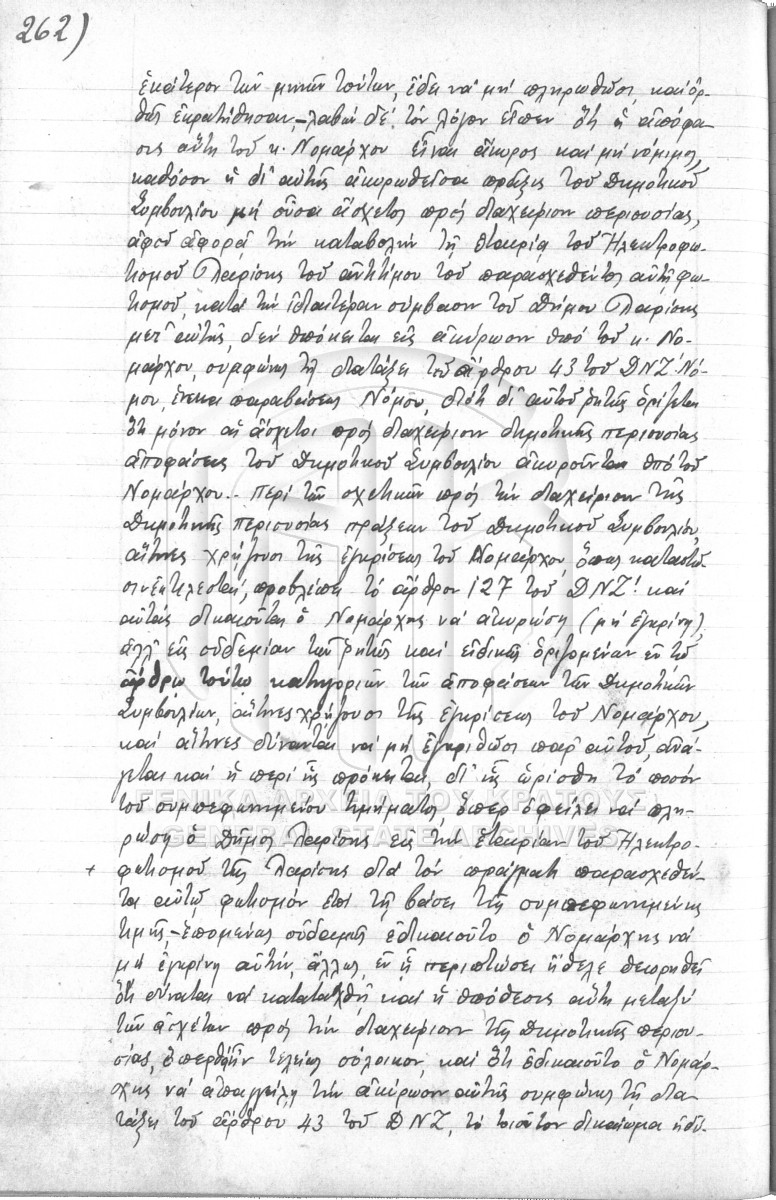 262)
ἑκάτερον τῶν μηνῶν τούτων, ἔδει νὰ μὴ πληρωθῶσι, καὶ ὀρ-
θῶς ἐκρατήθησαν,– λαβὼν δὲ τὸν λόγον εἶπεν ὅτι ἡ ἀπόφα-
σις αὕτη τοῦ κ. Νομάρχου εἶναι ἄκυρος καὶ μὴ νόμιμος,
καθόσον ἡ δι' αὐτῆς ἀκυρωθεῖσα πρᾶξις τοῦ Δημοτικοῦ
Συμβουλίου μὴ οὖσα ἄσχετος πρὸς διαχείρισιν περιουσίας,
ἀφοῦ ἀφορᾷ τὴν καταβολὴν τῇ Ἑταιρίᾳ τοῦ Ἠλεκτροφω-
τισμοῦ Λαρίσης τοῦ ἀντιτίμου τοῦ παρασχεθέντος αὐτῇ φω-
τισμοῦ, κατὰ τὴν ἰδιαιτέραν σύμβασιν τοῦ Δήμου Λαρίσης
μετ' αὐτῆς, δὲν ὑπόκειται εἰς ἀκύρωσιν ὑπὸ τοῦ κ. Νο-
μάρχου, συμφώνως τῇ διατάξει τοῦ ἄρθρου 43 τοῦ ΔΝΖ' Νό-
μου, ἕνεκα παραβάσεως Νόμου, διότι δι' αὐτοῦ ῥητῶς ὁρίζεται
ὅτι μόνον αἱ ἄσχετοι πρὸς διαχείρισιν δημοτικῆς περιουσίας
ἀποφάσεις τοῦ Δημοτικοῦ Συμβουλίου ἀκυροῦνται ὑπὸ τοῦ
Νομάρχου.– Περὶ τῶν σχετικῶν πρὸς τὴν διαχείρισιν τῆς
Δημοτικῆς περιουσίας πράξεων τοῦ Δημοτικοῦ Συμβουλίου
αἵτινες χρῄζουσι τῆς ἐγκρίσεως τοῦ Νομάρχου, ὅπως καταστῶσιν
ἐκτελεσταί, προβλέπει τὸ ἄρθρον 127 τοῦ ΔΝΖ' καὶ
αὐτὰς δικαιοῦται ὁ Νομάρχης νὰ ἀκυρώσῃ (μὴ ἐγκρίνῃ),
ἀλλ' εἰς οὐδεμίαν τῶν ῥητῶς καὶ εἰδικῶς ὁριζομένων ἐν τῷ
ἄρθρῳ τούτῳ κατηγοριῶν τῶν ἀποφάσεων τῶν Δημοτικῶν
Συμβουλίων, αἵτινες χρῄζουσι τῆς ἐγκρίσεως τοῦ Νομάρχου,
καὶ αἵτινες δύνανται νὰ μὴ ἐγκριθῶσι παρ' αὐτοῦ, ἀνά-
γεται καὶ ἡ περὶ ἧς πρόκειται, δι' ἧς ὡρίσθη τὸ ποσὸν
τοῦ συμπεφωνημένου τιμήματος, ὅπερ ὀφείλει νὰ πλη-
ρώσῃ ὁ Δῆμος Λαρίσης εἰς τὴν Ἑταιρίαν τοῦ Ἠλεκτρο-
+ φωτισμοῦ τῆς Λαρίσης διὰ τὸν πράγματι παρασχεθέν-
τα αὐτῷ φωτισμὸν ἐπὶ τῇ βάσει τῆς συμπεφωνημένης
τιμῆς,– ἑπομένως οὐδαμῶς ἐδικαιοῦτο ὁ Νομάρχης νὰ
μὴ ἐγκρίνῃ αὐτήν, ἄλλως, ἐν ᾗ περιπτώσει ἤθελε θεωρηθῆ
ὅτι δύναται νὰ καταταχθῇ καὶ ἡ ὑπόθεσις αὕτη μεταξὺ
τῶν ἀσχέτων πρὸς τὴν διαχείρισιν τῆς Δημοτικῆς περιου-
σίας, ὅπερ τελείως σόλοικον, καὶ ὅτι ἐδικαιοῦτο ὁ Νομάρ-
χης νὰ ἀπαγγείλῃ τὴν ἀκύρωσιν αὐτῆς συμφώνως τῇ δια-
τάξει τοῦ ἄρθρου 43 τοῦ ΔΝΖ, τὸ τοιοῦτον δικαίωμα ἠδύ-
ΓΕΝΙΚΑ ΑΡΧΕΙΑ ΤΟΥ ΚΡΑΤΟΥΣ
GENERAL STATE ARCHIVES